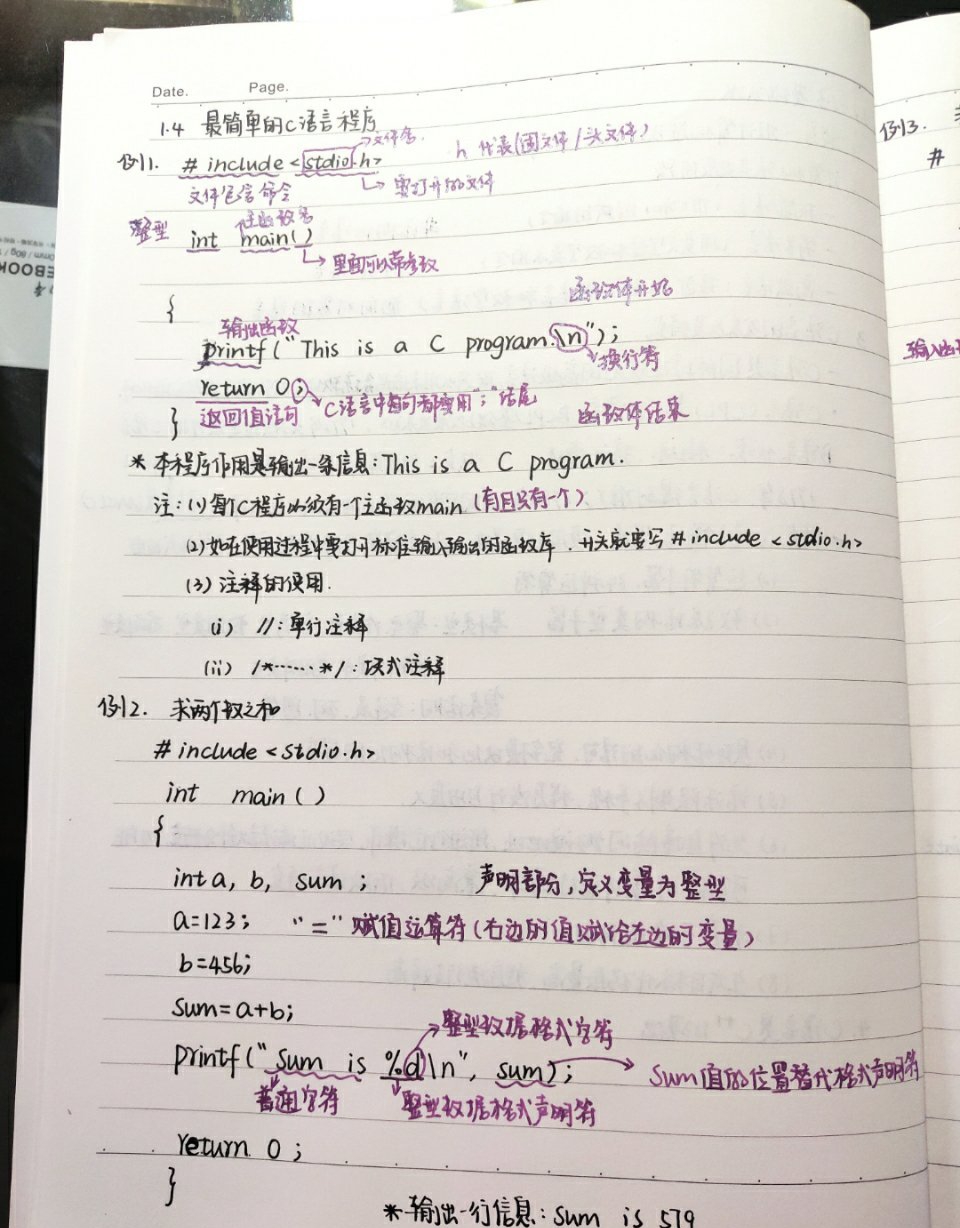 Date. Page.
1.4 最简单的C语言程序
→文件名.
例1. # include <stdio.h> h 代表(图文件/头文件)
文件包含命令 → 要打开的文件
主函数名
整型 int main()
→里面可以带参数
{ 函数体开始
输出函数
printf("This is a C program.\n");
→换行符
return 0;
返回值语句 C语言中每句都要用";"结尾
} 函数体结束
* 本程序作用是输出一条信息:This is a C program.
注:(1)每个C程序必须有一个主函数main (有且只有一个)
(2)如在使用过程中要打开标准输入输出的函数库,开头就要写#include <stdio.h>
(3)注释的使用.
(i) //:单行注释
(ii) /*······*/:块式注释
例2. 求两个数之和
#include <stdio.h>
int main()
{
int a, b, sum; 声明部分,定义变量为整型
a=123; "="赋值运算符(右边的值赋给左边的变量)
b=456;
sum=a+b;
→整型数据格式字符
printf("sum is %d\n", sum); → sum值的位置替代格式声明符
普通字符 整型数据格式声明符
return 0;
}
*输出一行信息:sum is 579
例3.
#
输入函
EBOOK